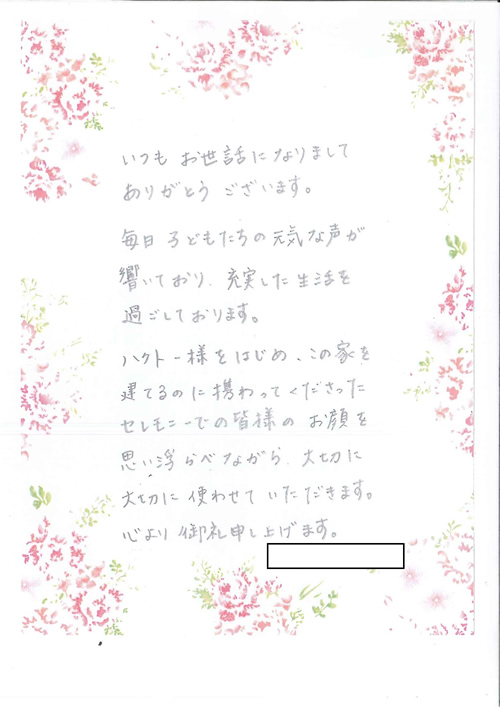 いつも お世話になりまして
ありがとう ございます。
毎日 子どもたちの元気な声が
響いており、充実した生活を
過ごしております。
ハクトー様をはじめ、この家を
建てるのに携わってくださった
セレモニーでの皆様の お顔を
思い浮らべながら、大切に
大切に 使わせて いただきます。
心より 御礼申し上げます。